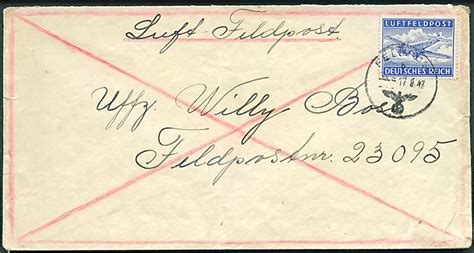 Luft-Feldpost
LUFTFELDPOST
DEUTSCHES REICH
Uffz. Willy
Feldpostnr. 23095